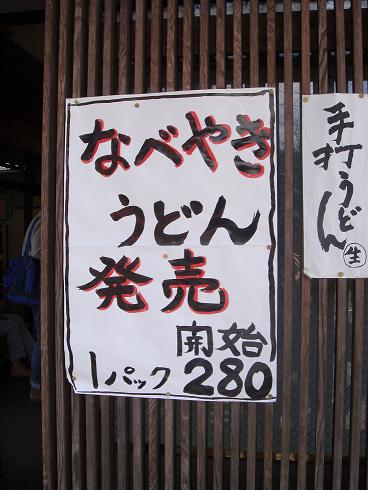 なべやき
うどん
発売
開始
1パック 280
手打うどん
生